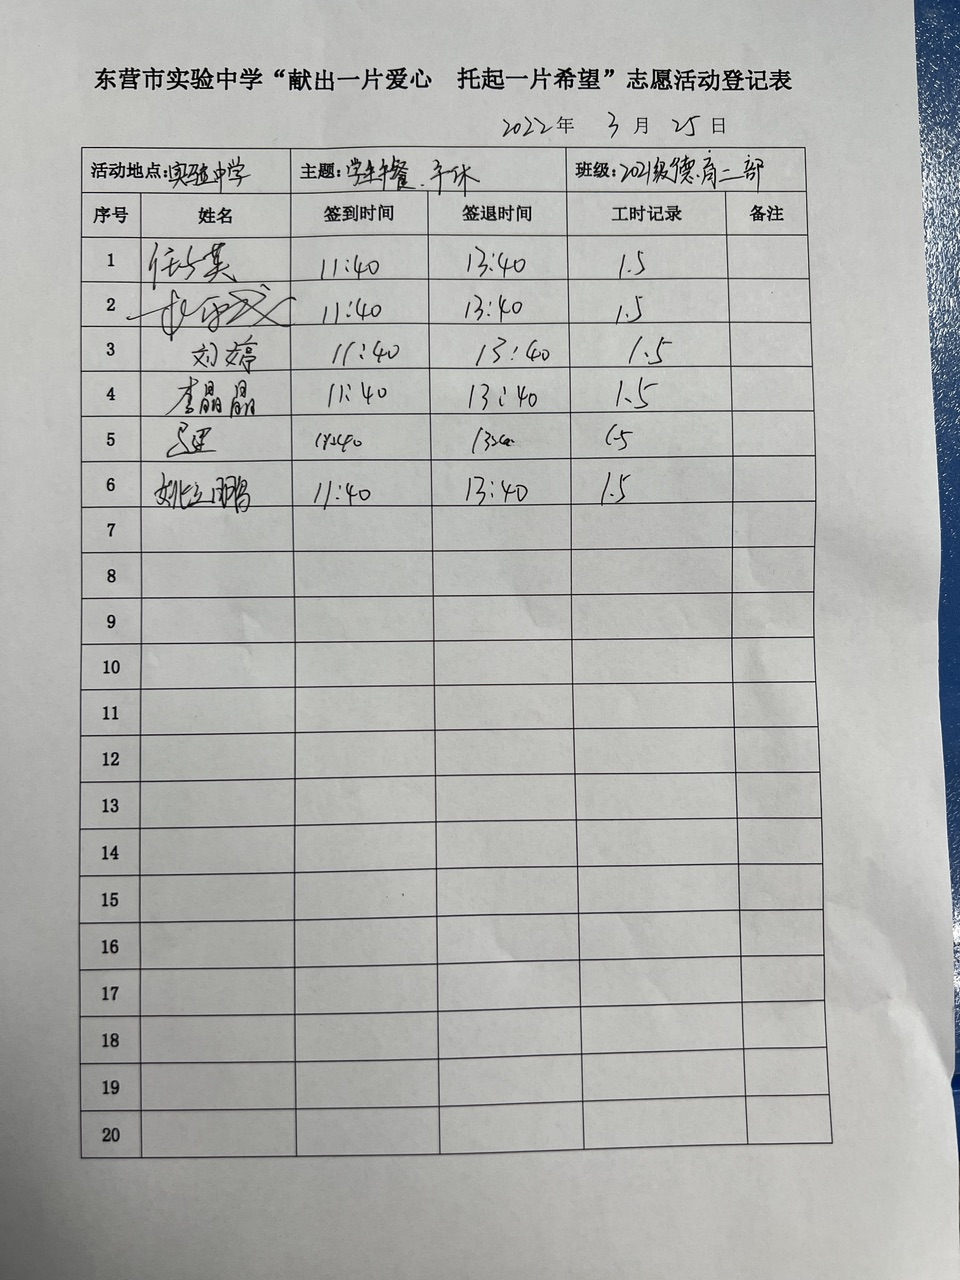 东营市实验中学“献出一片爱心 托起一片希望”志愿活动登记表
2022年 3月 25日
活动地点:实验中学 主题:学生午餐、午休 班级:2021级德育二部
序号 姓名 签到时间 签退时间 工时记录 备注
1 任英 11:40 13:40 1.5
2 11:40 13:40 1.5
3 刘婷 11:40 13:40 1.5
4 李晶晶 11:40 13:40 1.5
5 11:40 13:40 1.5
6 姚立鹏 11:40 13:40 1.5
7
8
9
10
11
12
13
14
15
16
17
18
19
20